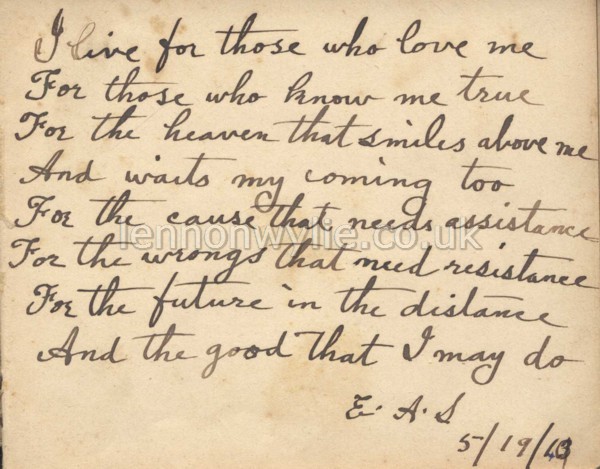 I live for those who love me
For those who know me true
For the heaven that smiles above me
And waits my coming too
For the cause that needs assistance
lennonwylie.co.uk
For the wrongs that need resistance
For the future in the distance
And the good that I may do
E. A. S
5/19/